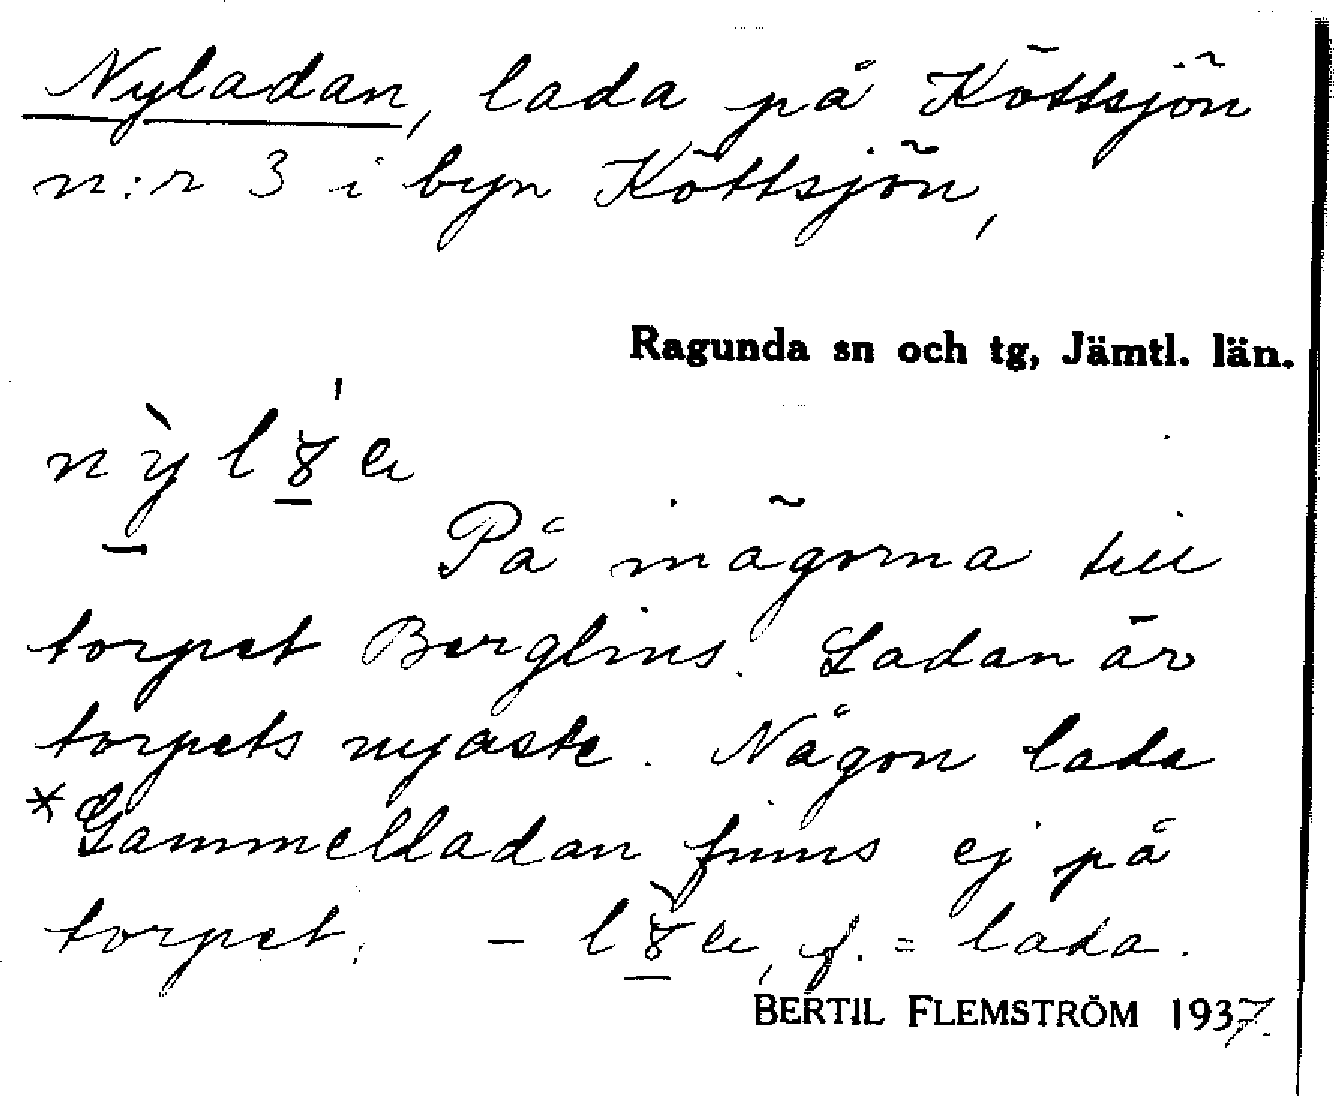 Nyladan, lada på Köttsjön
n:r 3 i byn Köttsjön,
Ragunda sn och tg, Jämtl. län.
På inägorna till
torpet Berglins. Ladan är
torpets nyaste. Någon lada
*Gammelladan finns ej på
torpet. – f. = lada.
BERTIL FLEMSTRÖM 1937.